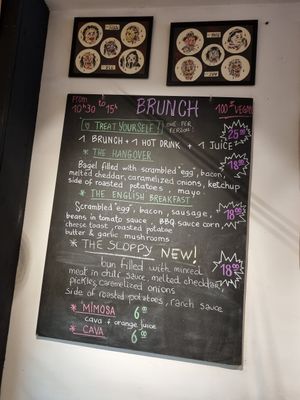 From 10h30 to 15h
BRUNCH
100% VEGAN
TREAT YOURSELF!
ONE PER PERSON!
25.00
1 BRUNCH + 1 HOT DRINK + 1 JUICE
* THE HANGOVER
18.00
Bagel filled with scrambled "egg", bacon,
melted cheddar, caramelized onions, ketchup
side of roasted potatoes, mayo.
* THE ENGLISH BREAKFAST
18.00
Scrambled "egg", bacon, sausage,
beans in tomato sauce, BBQ sauce corn
cheese toast, roasted potatoe
butter & garlic mushrooms
* THE SLOPPY NEW!
18.00
bun filled with minced
meat in chili sauce, melted cheddar
pickles, caramelized onions
side of roasted potatoes, ranch sauce
* MIMOSA 6.00
cava + orange juice
* CAVA 6.00